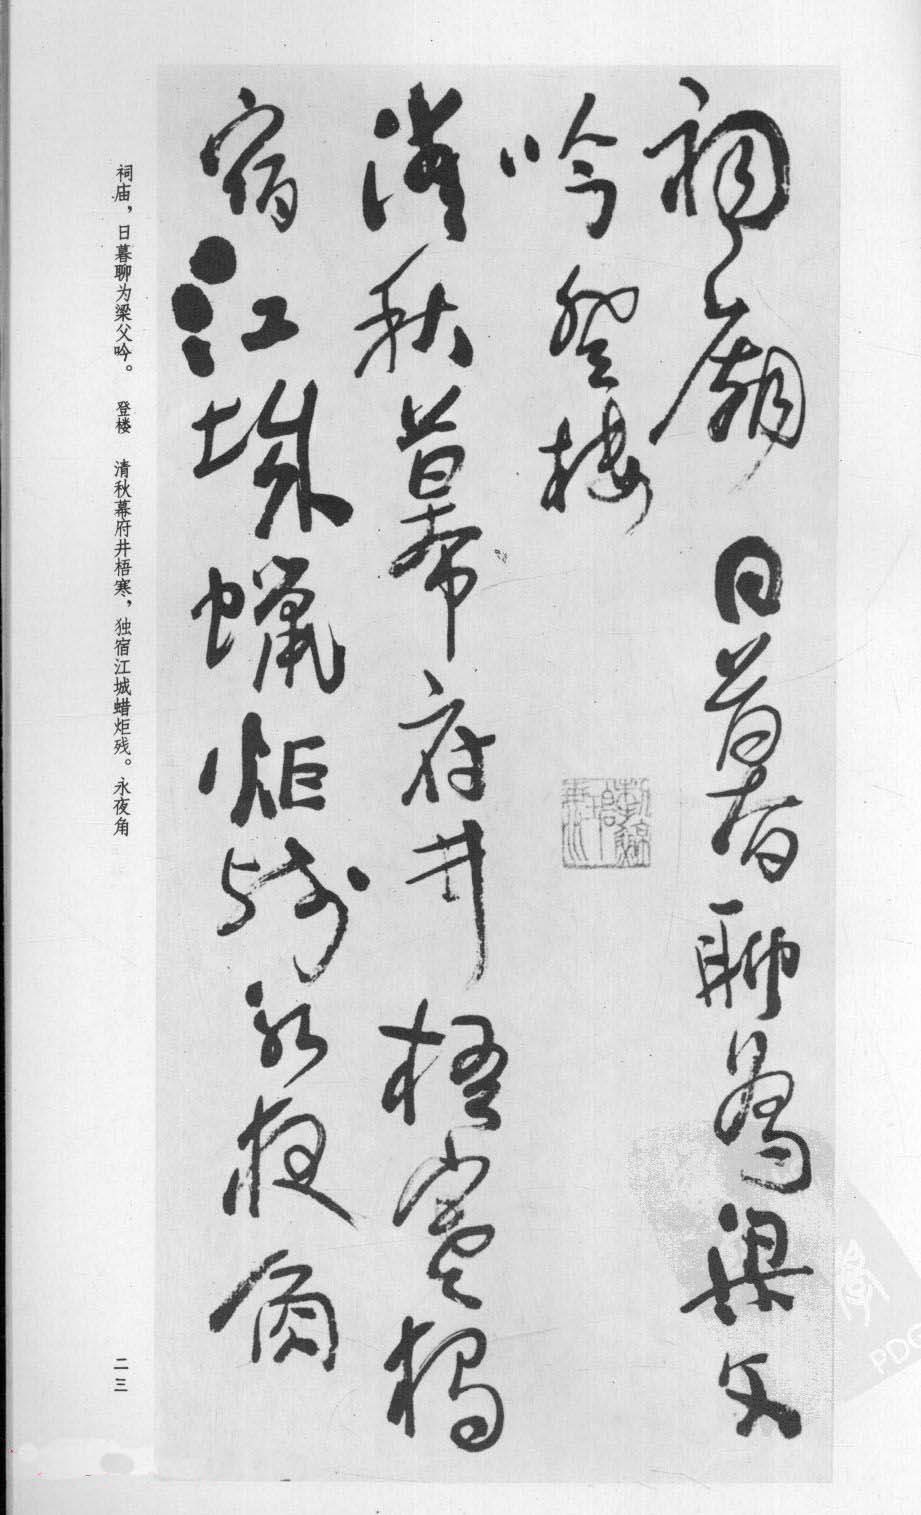 祠庙日暮聊为梁父
吟登楼
清秋幕府井梧寒独
宿江城蜡炬残永夜角
祠庙，日暮聊为梁父吟。　登楼　清秋幕府井梧寒，独宿江城蜡炬残。永夜角
二三
PDG